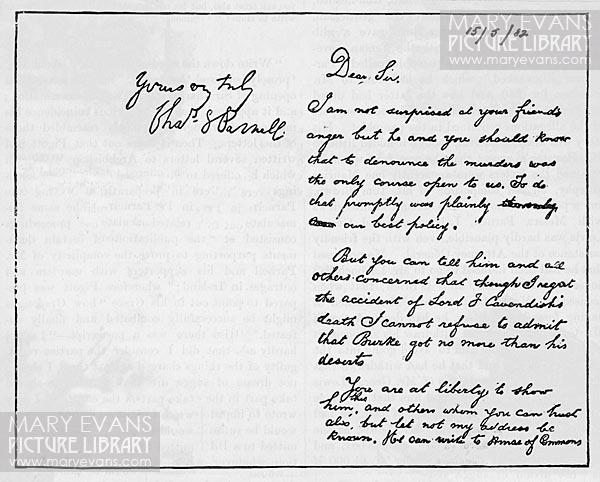 MARY EVANS
PICTURE LIBRARY
www.maryevans.com
15/5/82
Dear Sir,
I am not surprised at your friend's
anger but he and you should know
that to denounce the murders was
the only course open to us. To do
that promptly was plainly the only
our best policy.
But you can tell him and all
others concerned that though I regret
the accident of Lord F Cavendish's
death I cannot refuse to admit
that Burke got no more than his
deserts
You are at liberty to show
him this, and others whom you can trust
also, but let not my address be
known. He can write to House of Commons
Yours very truly
Chas S Parnell.
MARY EVANS
PICTURE LIBRARY
www.maryevans.com
MARY EVANS
PICTURE LIBRARY
www.maryevans.com